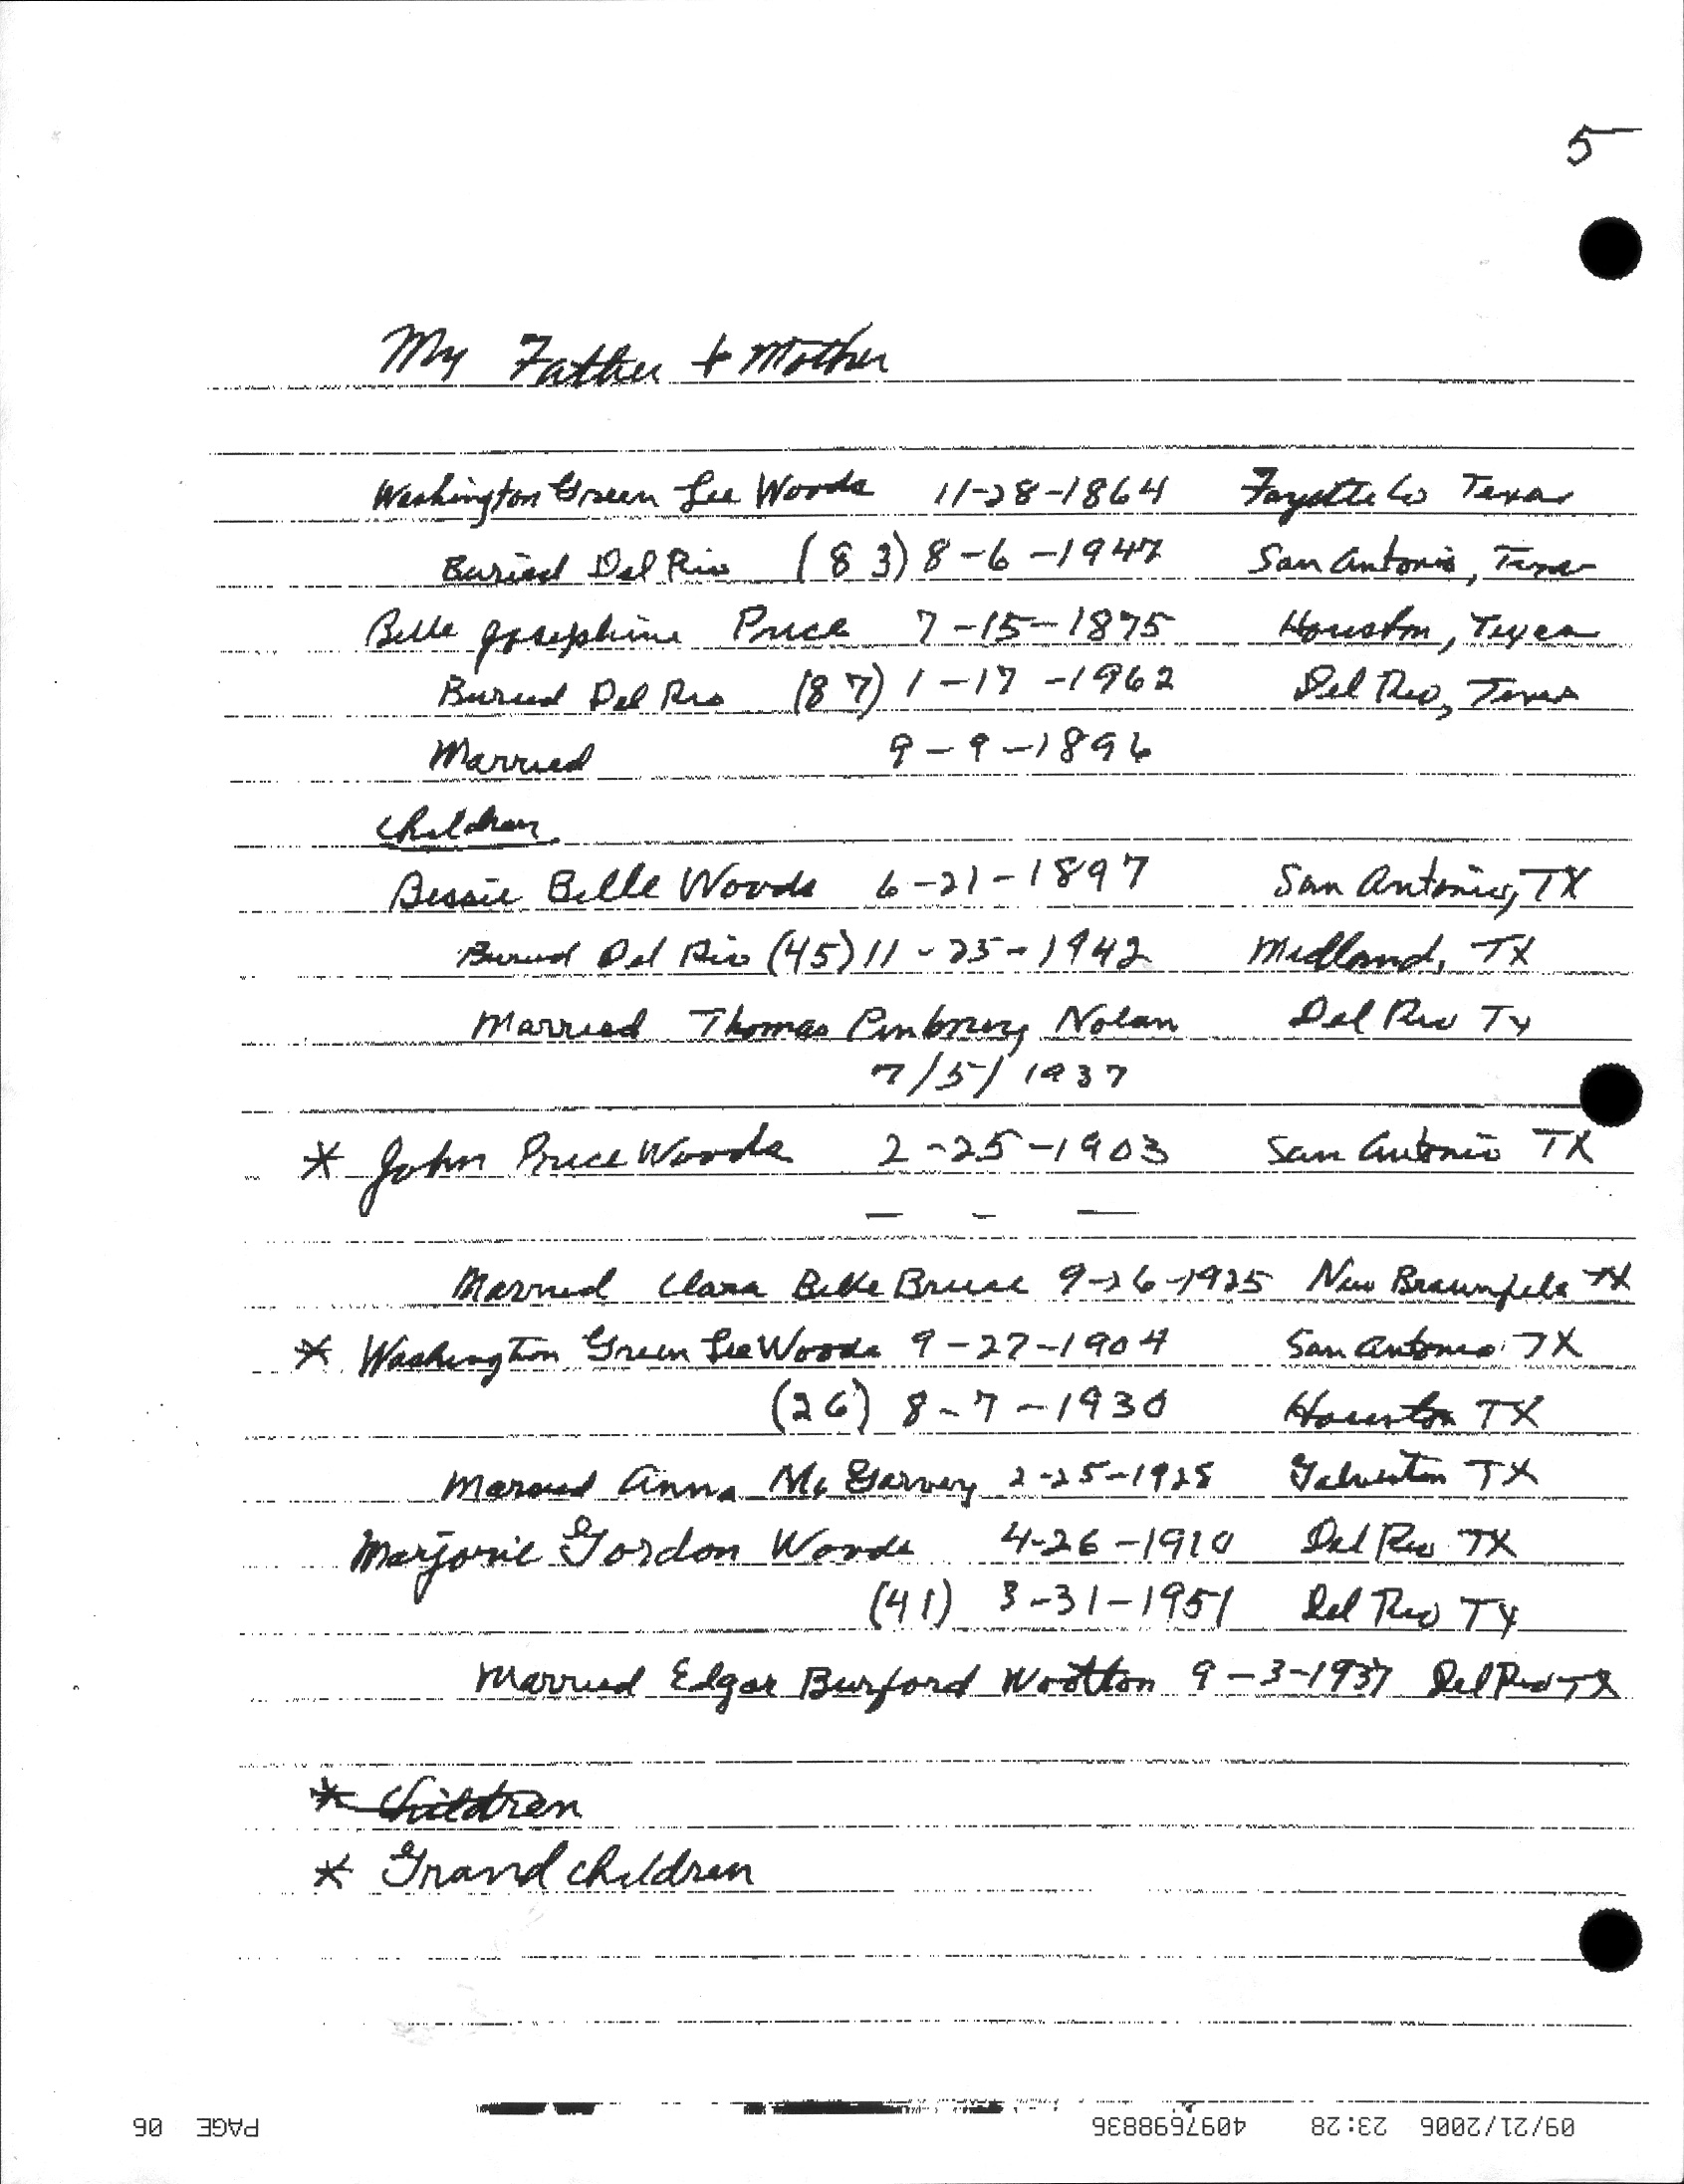 5
My Father + Mother
Washington Green Lee Woods 11-28-1864 Fayette Co Texas
Buried Del Rio (83) 8-6-1947 San Antonio, Texas
Belle Josephine Price 7-15-1875 Houston, Texas
Buried Del Rio (87) 1-17-1962 Del Rio, Texas
Married 9-9-1896
Children
Bessie Belle Woods 6-21-1897 San Antonio, TX
Buried Del Rio (45) 11-25-1942 Midland, TX
Married Thomas Nolan Del Rio TX
7/5/1937
* John Price Woods 2-25-1903 San Antonio TX
— — —
Married Clara Belle Bruce 9-26-1925 New Braunfels TX
* Washington Green Lee Woods 9-27-1904 San Antonio TX
(26) 8-7-1930 Houston TX
Married Anna McGarvey 2-25-1925 Galveston TX
Marjorie Gordon Woods 4-26-1910 Del Rio TX
(41) 3-31-1951 Del Rio TX
Married Edgar Burford Wootton 9-3-1937 Del Rio TX
* Children
* Grand children
09/21/2006 23:28 4097698836 PAGE 06